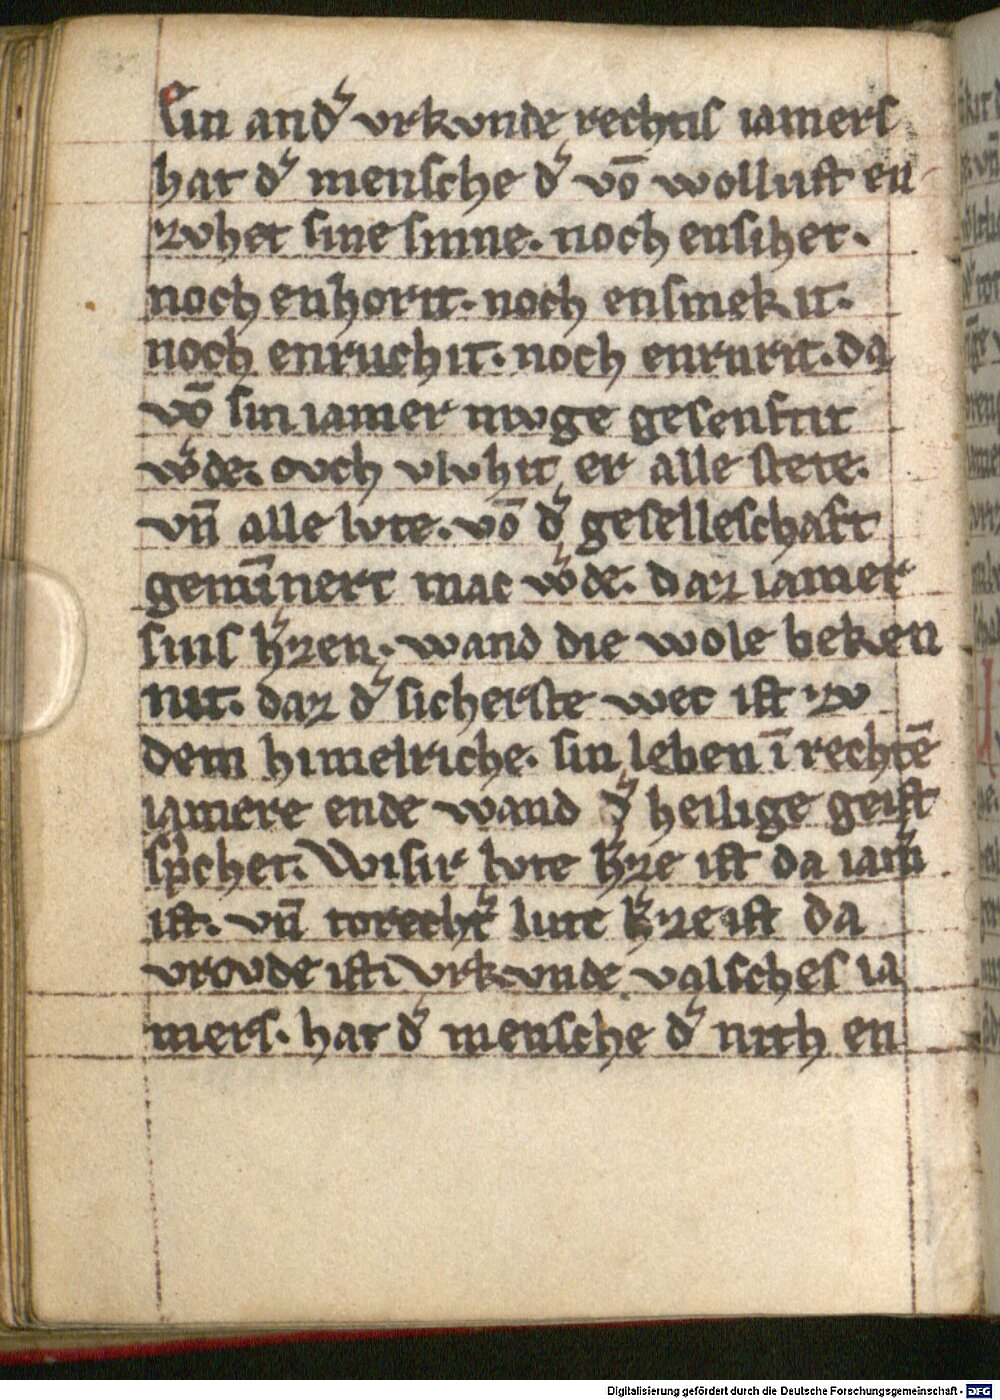 Ein and͛ vrkvnde rechtis iamers
hat d͛ mensche d͛ vō wollust en
zvhet sine sinne. noch ensihet.
noch enhorit. noch ensmekit.
noch enruchit. noch enrurit. da
vō sin iamer mvge gesenftit
w͛de. ovch vlvhit er alle stete.
vn̄ alle lvte. vō d͛ geselleschaft
gemīnert mac w͛de. daz iamer
sinis h͛zen. wand die wole beken
nit. daz d͛ sicherste wec ist zv
dem himelriche. sin leben ī rechtē
iamere ende wand d͛ heilige geist
sp͛chet. Wisir lvte h͛ze ist da iam͛
ist. vn̄ torecht͛ lute h͛ze ist da
vrovde ist. Vrkvnde valsches ia
mers. hat d͛ mensche d͛ nith en
Digitalisierung gefördert durch die Deutsche Forschungsgemeinschaft - DFG